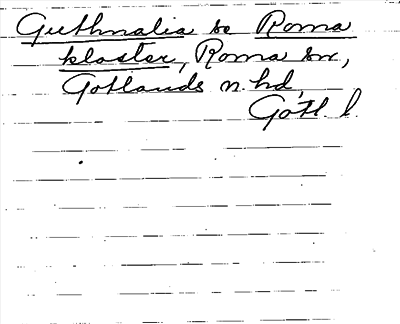 Guthnalia se Roma
kloster, Roma sn,
Gotlands n. hd,
Gotl. l.